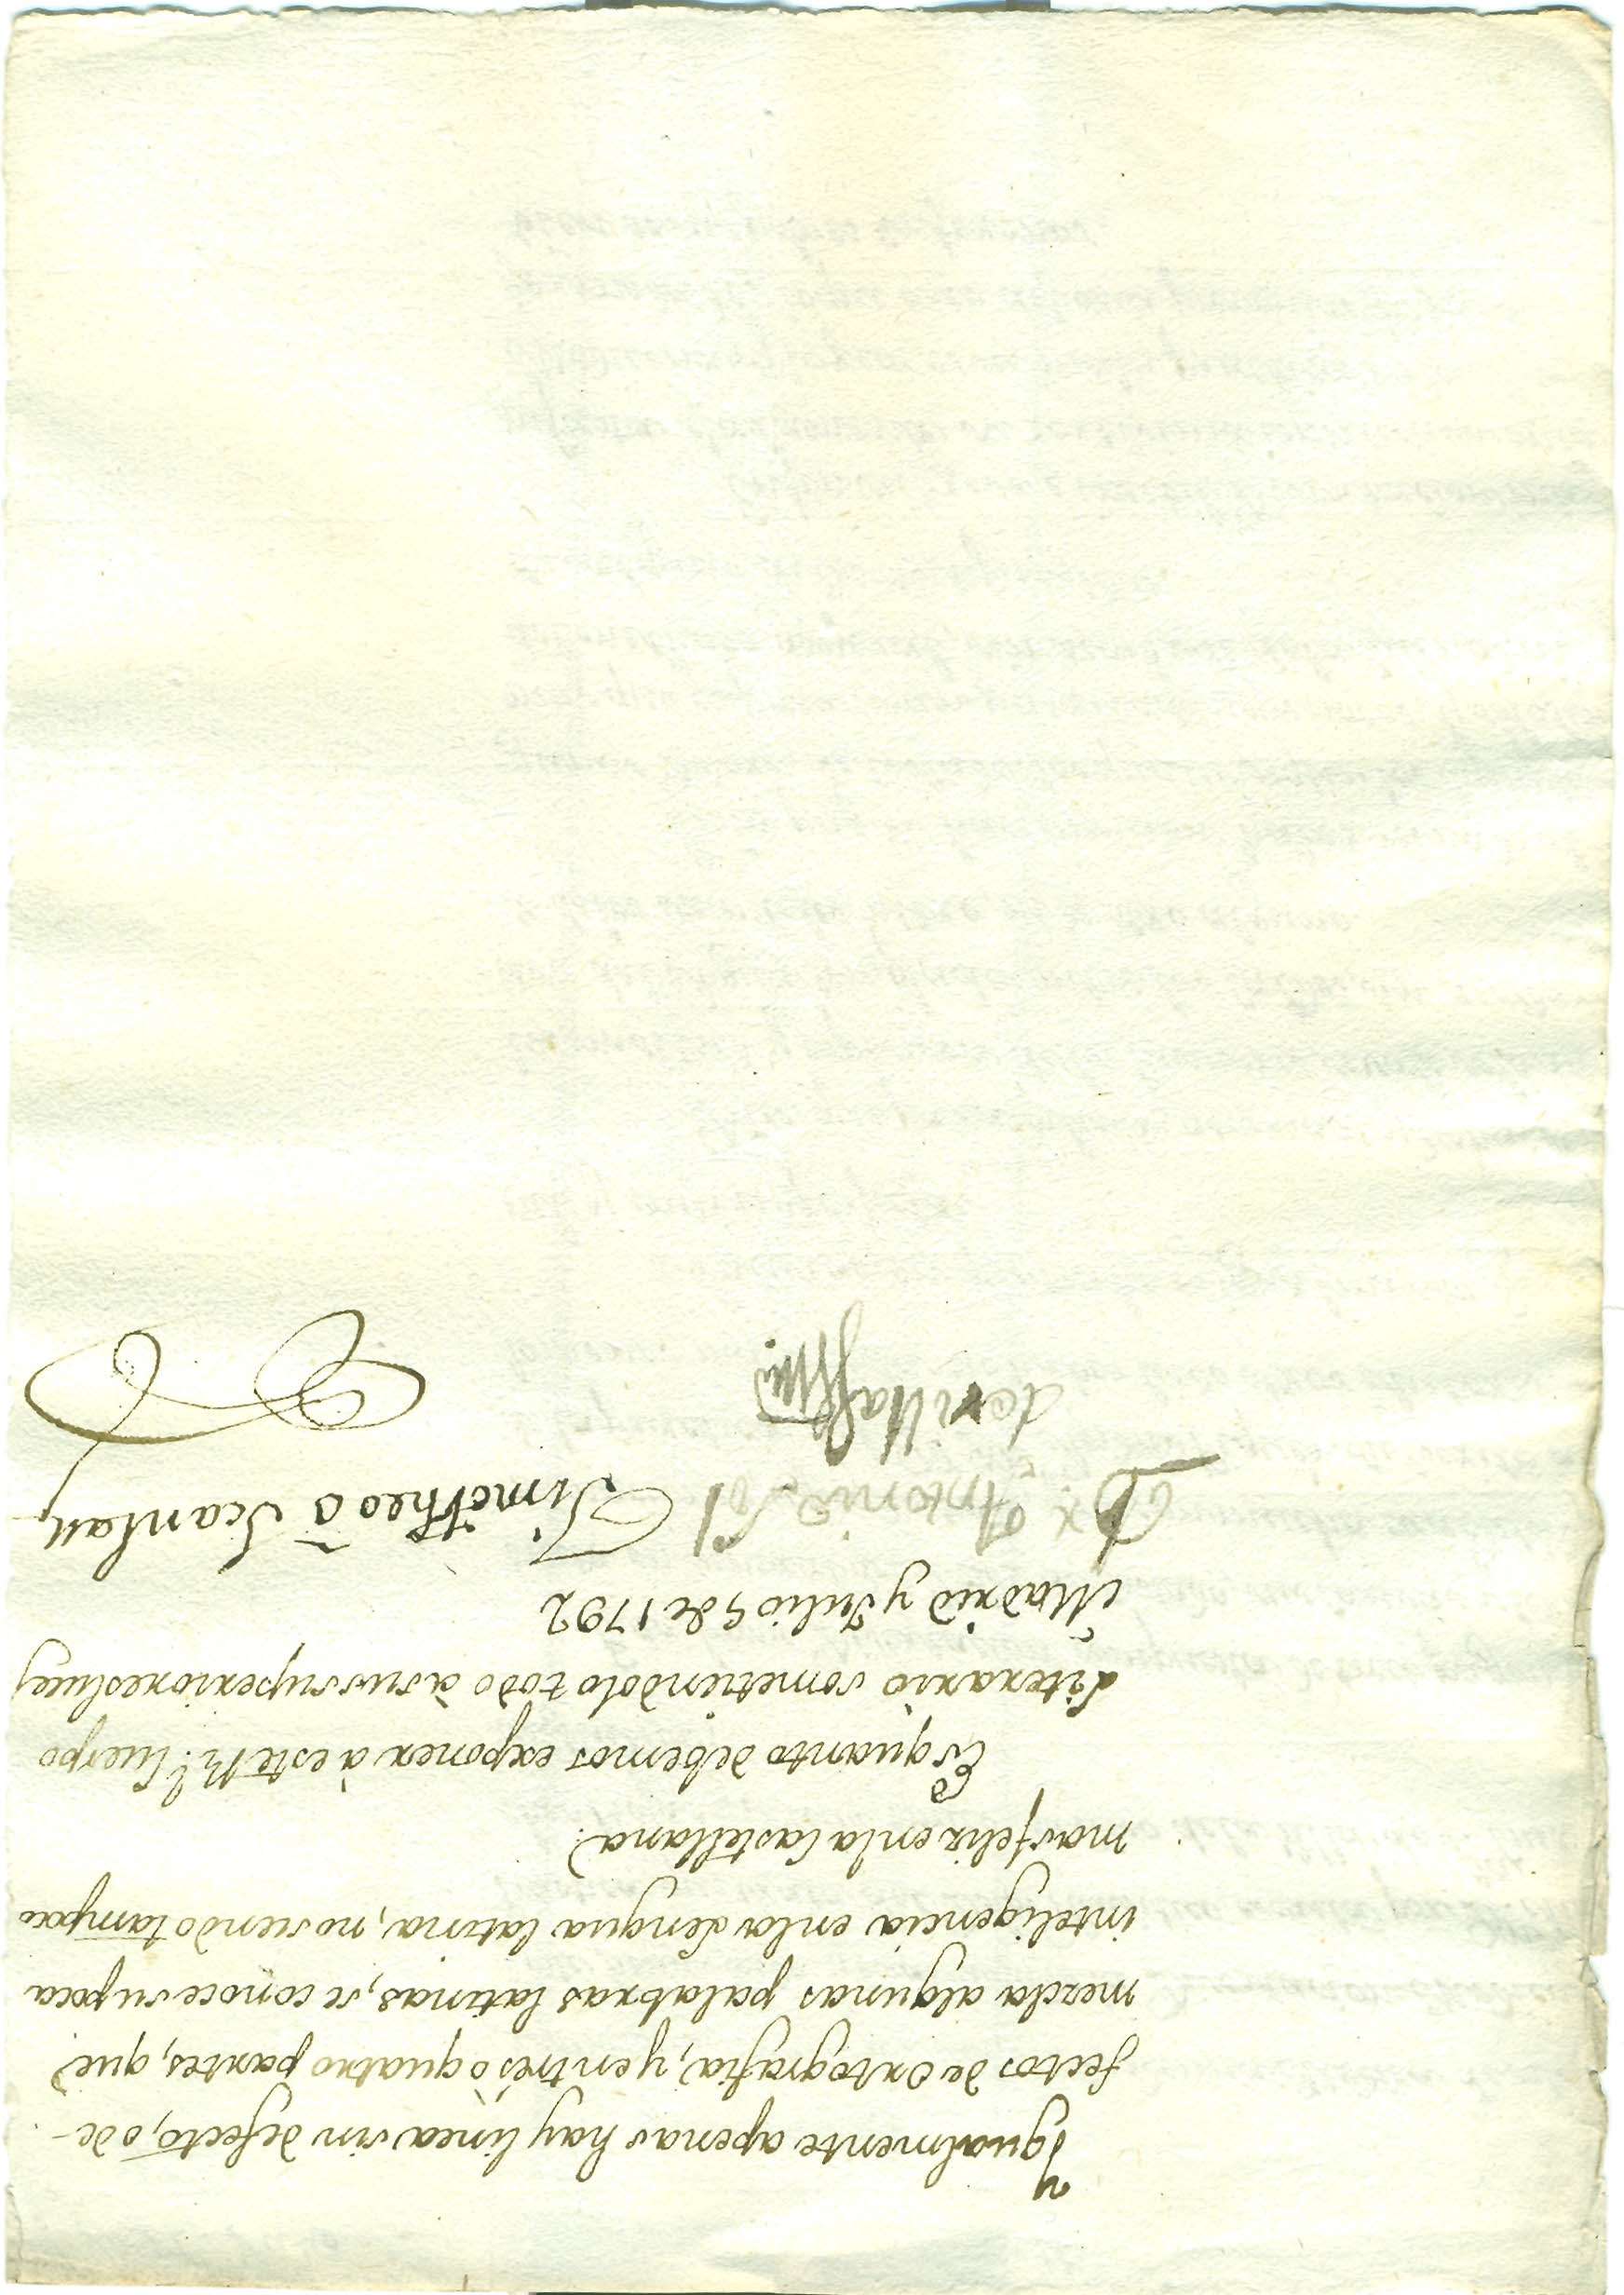 Ygualmente apenas hay linea sin defecto, o de-
fectos de Ortografia, y en tres, o quatro partes, que
mezcla algunas palabras latinas, se conoce su poca
inteligencia en la Lengua latina, no siendo tampoco
mas feliz en la Castellana.
Es quanto debemos exponer à este Rl. Cuerpo
Literario sometiendolo todo à sus superiores luces
Madrid y Julio 5 de 1792
Dr. Antonio Sol Timotheo ō Scanlan
de villa